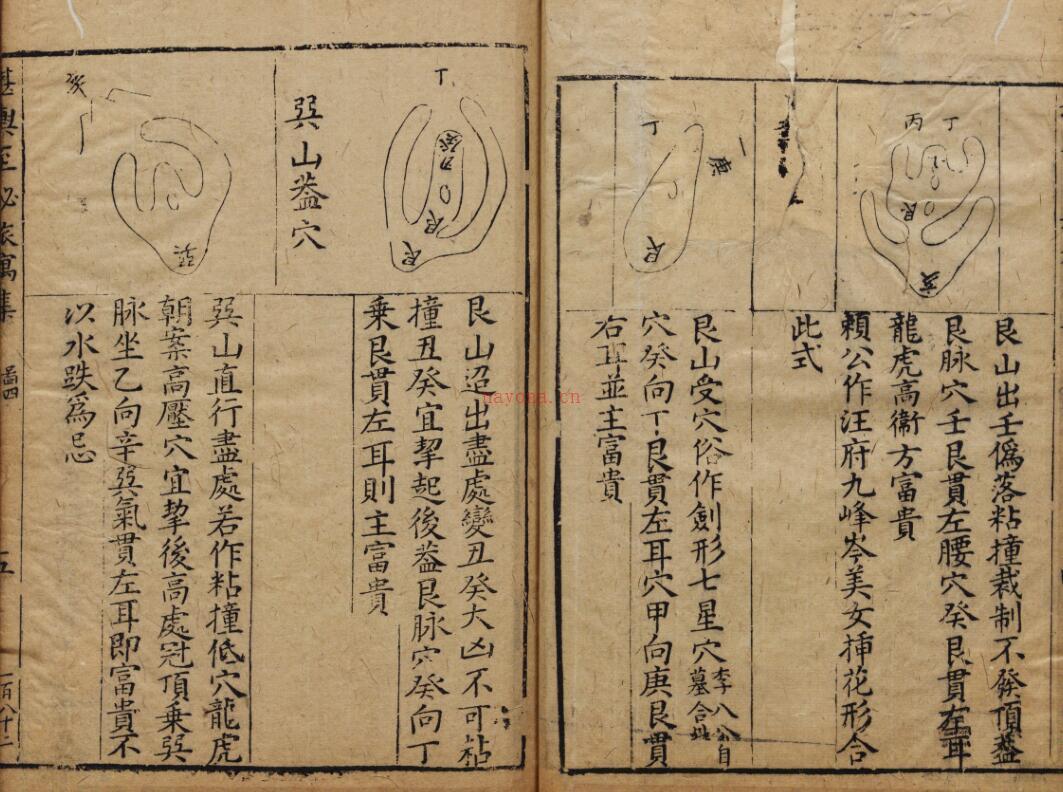 丁
丙
艮
亥
艮山出壬偽落粘撞裁制不發頂葢
艮脉穴壬艮貫左腰穴癸艮貫左耳
龍虎高衛方富貴
賴公作汪府九峰岺美女揷花形合
此式
一庚
丁
艮
艮山受穴俗作劍形七星穴李八公自
墓合此
穴癸向丁艮貫左耳穴甲向庚艮貫
右耳並主富貴
丁
癸
丑
艮
艮
艮山迢出盡處變丑癸大凶不可粘
撞丑癸宜挈起後葢艮脉穴癸向丁
乗艮貫左耳則主富貴
巽山葢穴
亥
巽
巽山直行盡處若作粘撞低穴龍虎
朝案高壓穴宜挈後高處冠頂乗巽
脉坐乙向辛巽氣貫左耳即富貴不
以水跌為忌
堪輿至秘旅寓集
啚四
五
一百八十一
nayona.cn